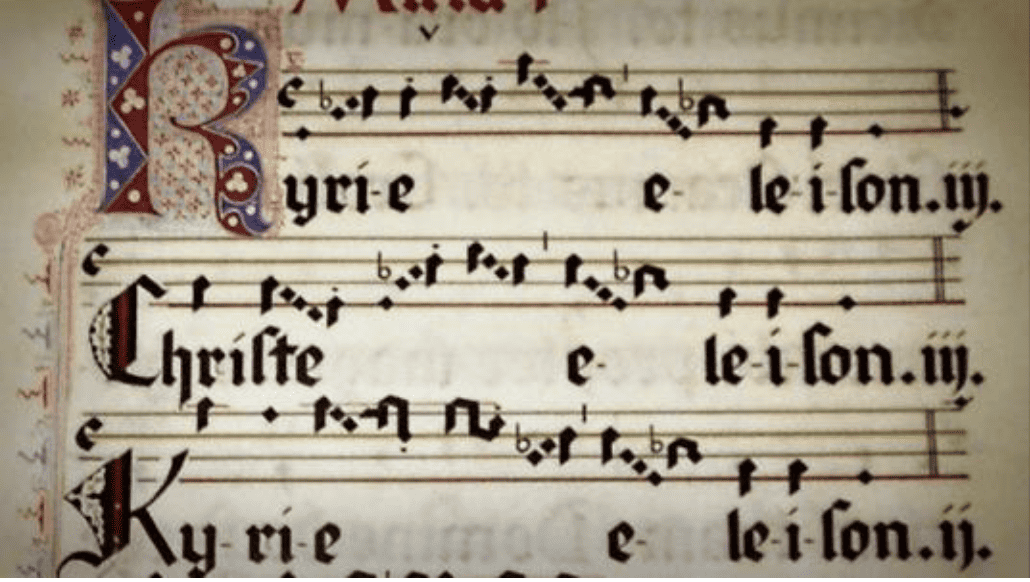 Kyri-e e-le-i-ſon.iij.
Chriſte e-le-i-ſon.iij.
Ky-ri-e e-le-i-ſon.ij.